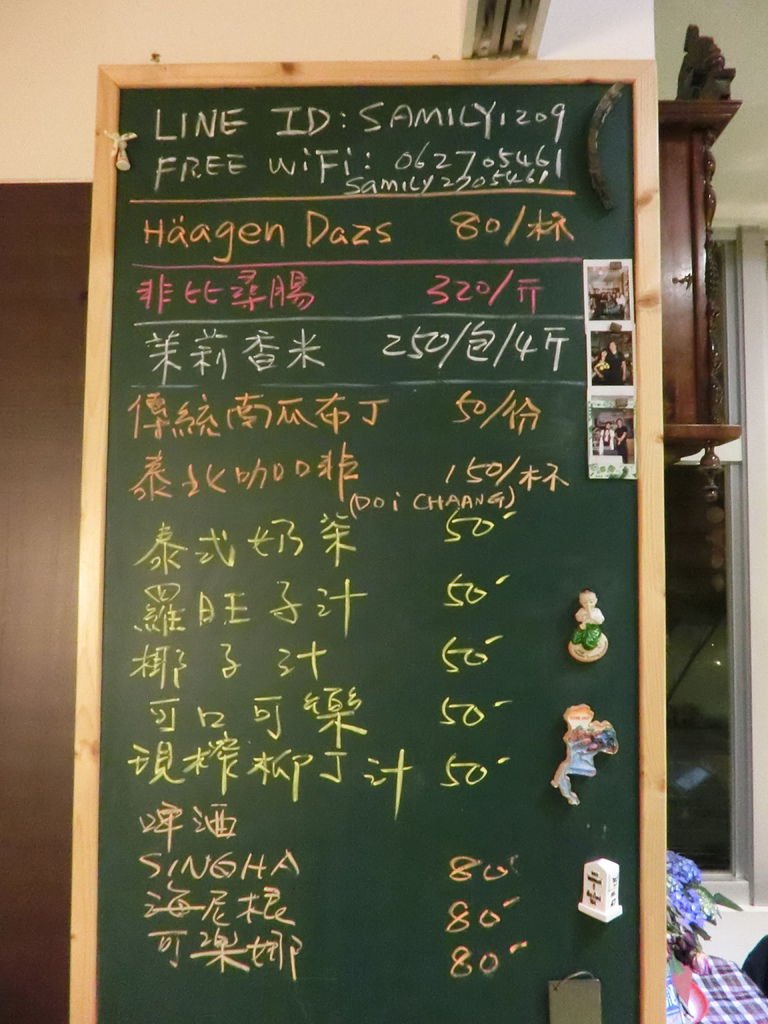 LINE ID: SAMILY1209
FREE WiFi: 062705461
Samily2705461
Häagen Dazs 80/杯
非比尋腸 320/斤
茉莉香米 250/包/4斤
傳統南瓜布丁 50/份
泰北咖啡 150/杯
(DOi CHAANG)
泰式奶茶 50
羅旺子汁 50
椰子汁 50
可口可樂 50
現榨柳丁汁 50
啤酒
SINGHA 80
海尼根 80
可樂娜 80